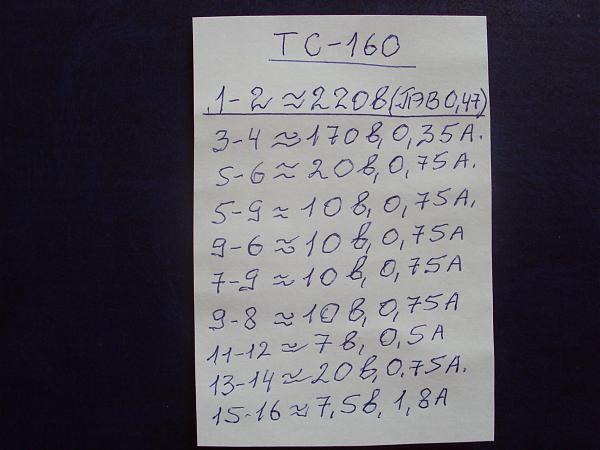 ТС-160
1-2 ≈ 220в (ПЭВ 0,47)
3-4 ≈ 170в, 0,35А.
5-6 ≈ 20в, 0,75А.
5-9 ≈ 10в, 0,75А.
9-6 ≈ 10в, 0,75А
7-9 ≈ 10в, 0,75А
9-8 ≈ 10в, 0,75А
11-12 ≈ 7в, 0,5А
13-14 ≈ 20в, 0,75А.
15-16 ≈ 7,5в, 1,8А